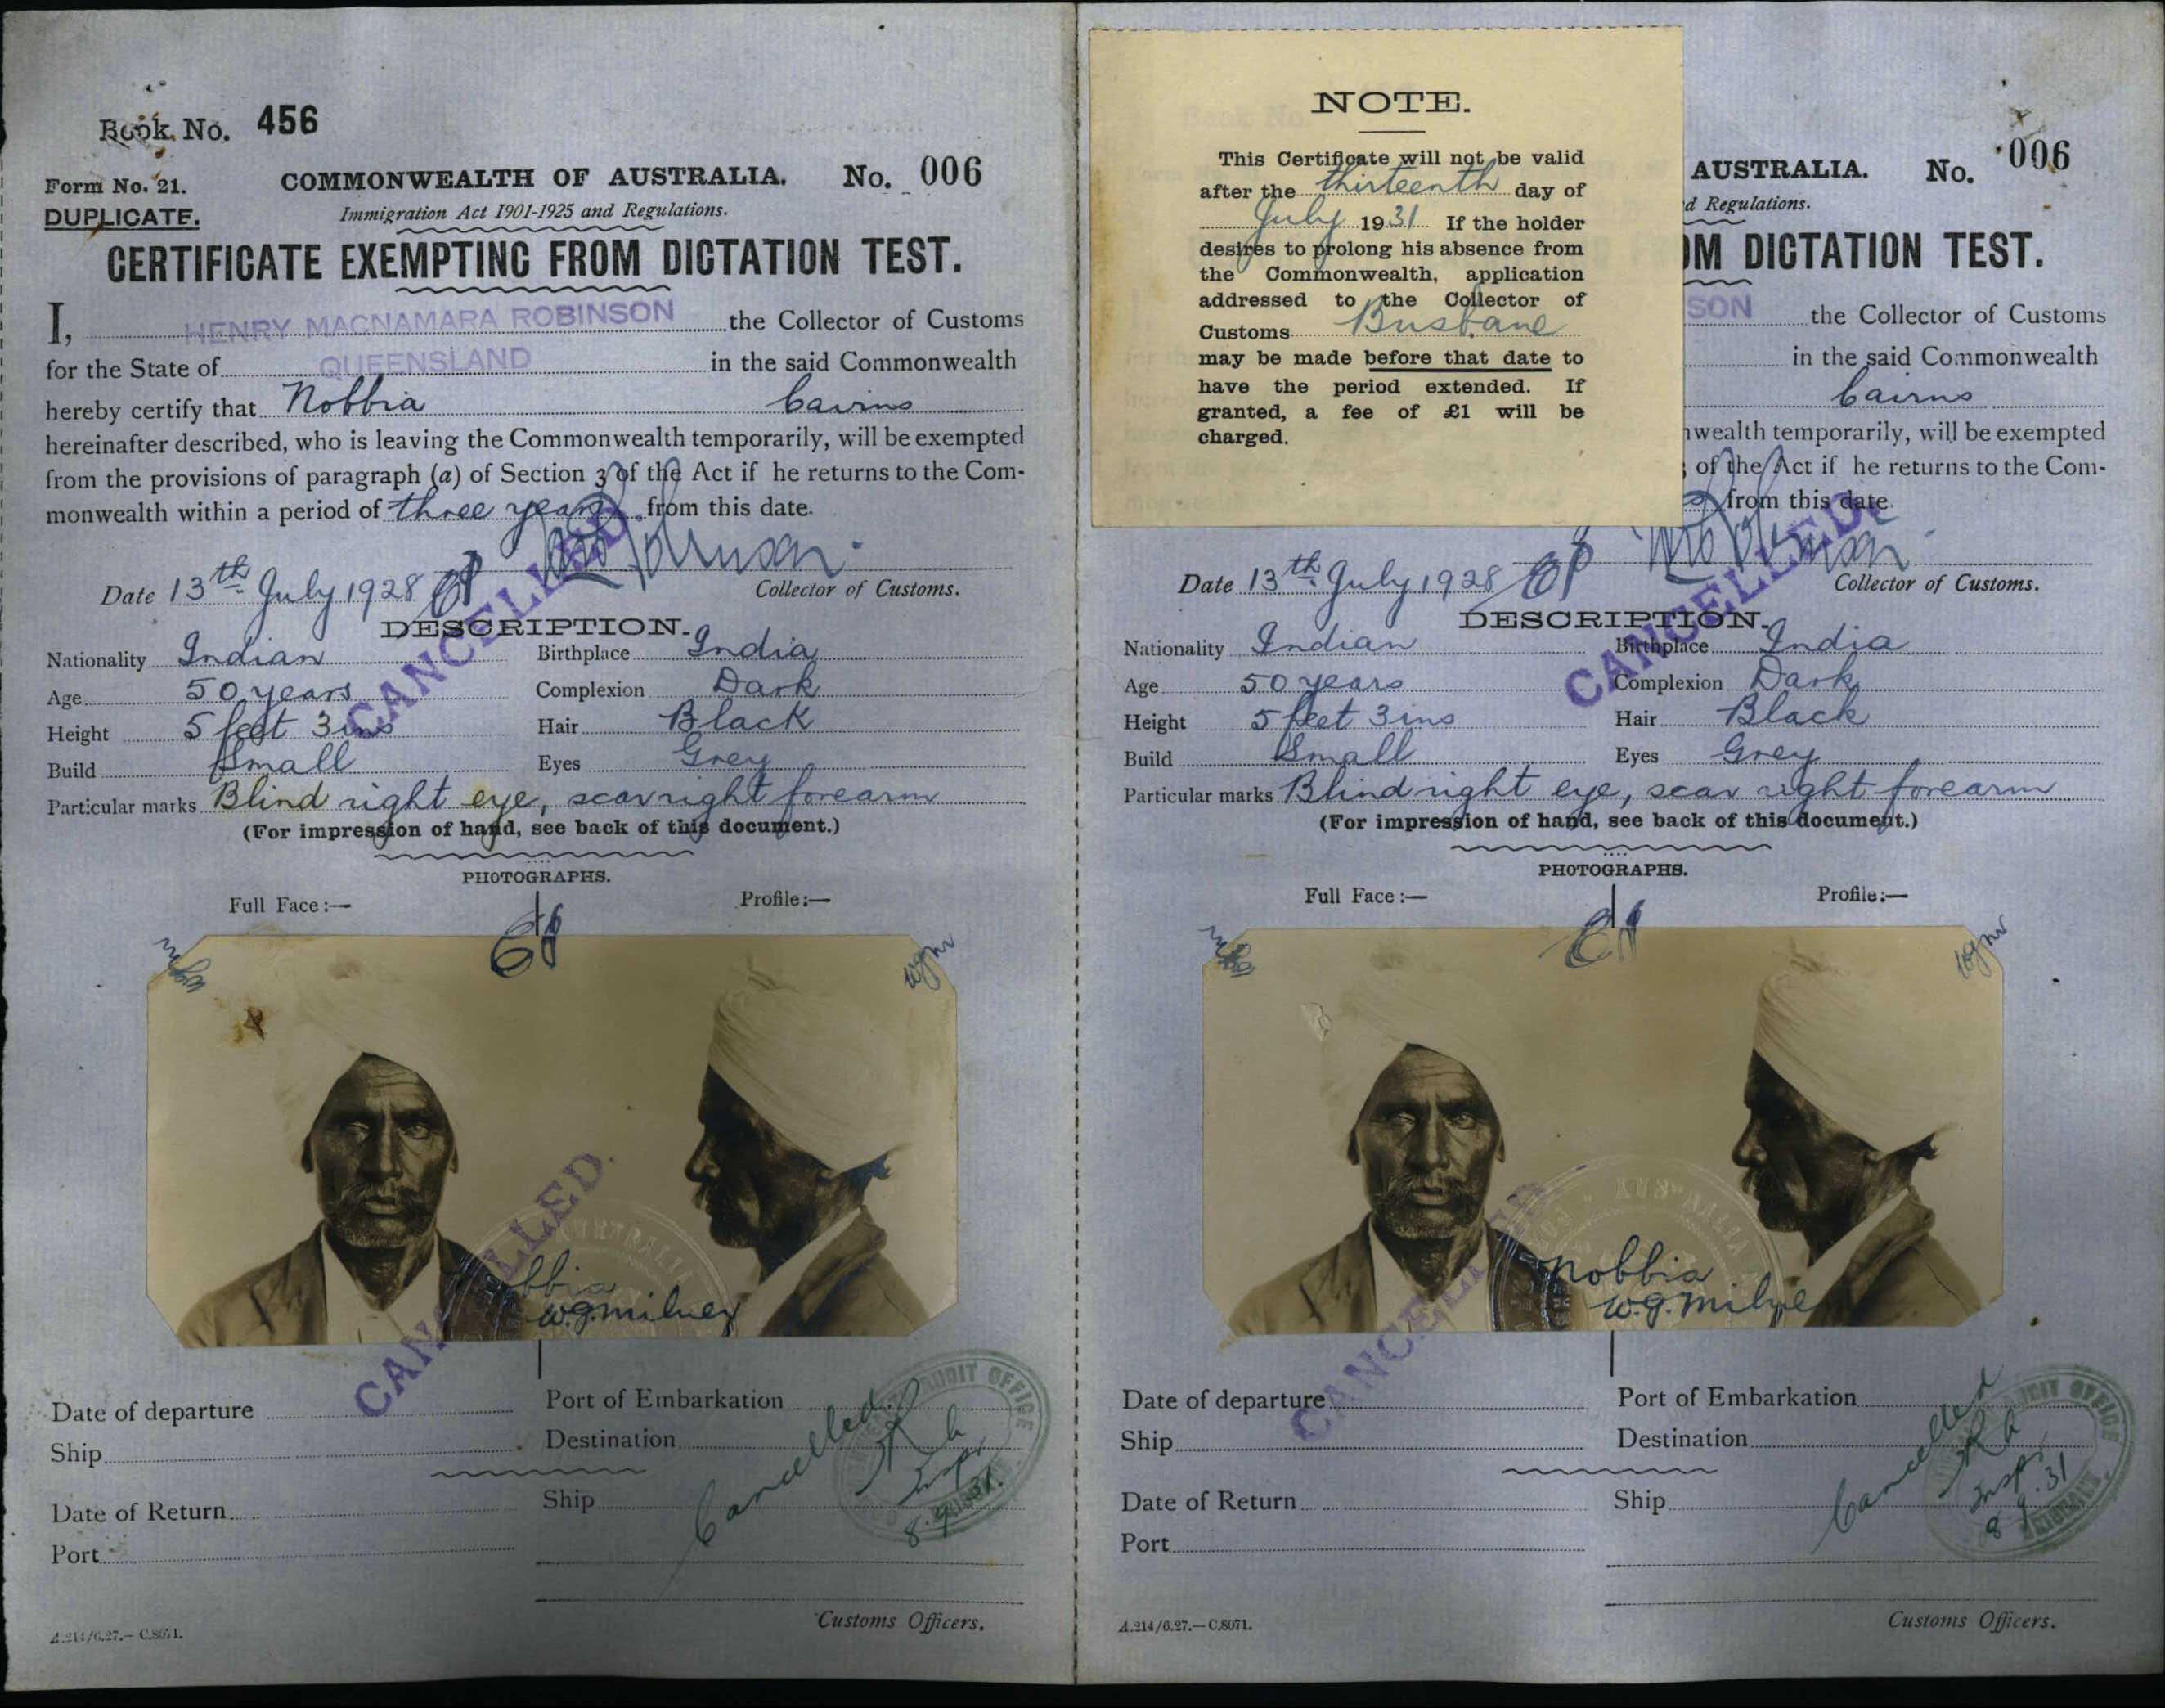 Book No. 456
Form No. 21.
COMMONWEALTH OF AUSTRALIA. No. 006
DUPLICATE.
Immigration Act 1901-1925 and Regulations.
CERTIFICATE EXEMPTING FROM DICTATION TEST.
I, HENRY MACNAMARA ROBINSON the Collector of Customs
for the State of QUEENSLAND in the said Commonwealth
hereby certify that Nobbia Cairns
hereinafter described, who is leaving the Commonwealth temporarily, will be exempted
from the provisions of paragraph (a) of Section 3 of the Act if he returns to the Com-
monwealth within a period of three years from this date.
Date 13th July 1928
Collector of Customs.
CANCELLED.
DESCRIPTION.
Nationality Indian Birthplace India
Age 50 years Complexion Dark
Height 5 feet 3 ins Hair Black
Build Small Eyes Grey
Particular marks Blind right eye, scar right forearm
(For impression of hand, see back of this document.)
PHOTOGRAPHS.
Full Face :— Profile :—
wgm
CANCELLED.
AUSTRALIA
bbia
w.g. milney
Date of departure Port of Embarkation
Ship Destination
Date of Return Ship
Port
Cancelled
AUDIT OFFICE
Inspr
8.9.31.
Customs Officers.
A.214/6.27.— C.8071.
NOTE.
This Certificate will not be valid
after the thirteenth day of
July 1931 If the holder
desires to prolong his absence from
the Commonwealth, application
addressed to the Collector of
Customs Brisbane
may be made before that date to
have the period extended. If
granted, a fee of £1 will be
charged.
AUSTRALIA. No. 006
d Regulations.
OM DICTATION TEST.
SON the Collector of Customs
in the said Commonwealth
Cairns
nwealth temporarily, will be exempted
of the Act if he returns to the Com-
from this date.
Date 13th July 1928
Collector of Customs.
CANCELLED.
DESCRIPTION.
Nationality Indian Birthplace India
Age 50 years Complexion Dark
Height 5 feet 3 ins Hair Black
Build Small Eyes Grey
Particular marks Blind right eye, scar right forearm
(For impression of hand, see back of this document.)
PHOTOGRAPHS.
Full Face :— Profile :—
wgm
CANCELLED
AUSTRALIA
Nobbia
w.g. milne
Date of departure Port of Embarkation
Ship Destination
Date of Return Ship
Port
Cancelled
AUDIT OFFICE
Inspr
8.9.31
BRISBANE
Customs Officers.
A.214/6.27.— C.8071.